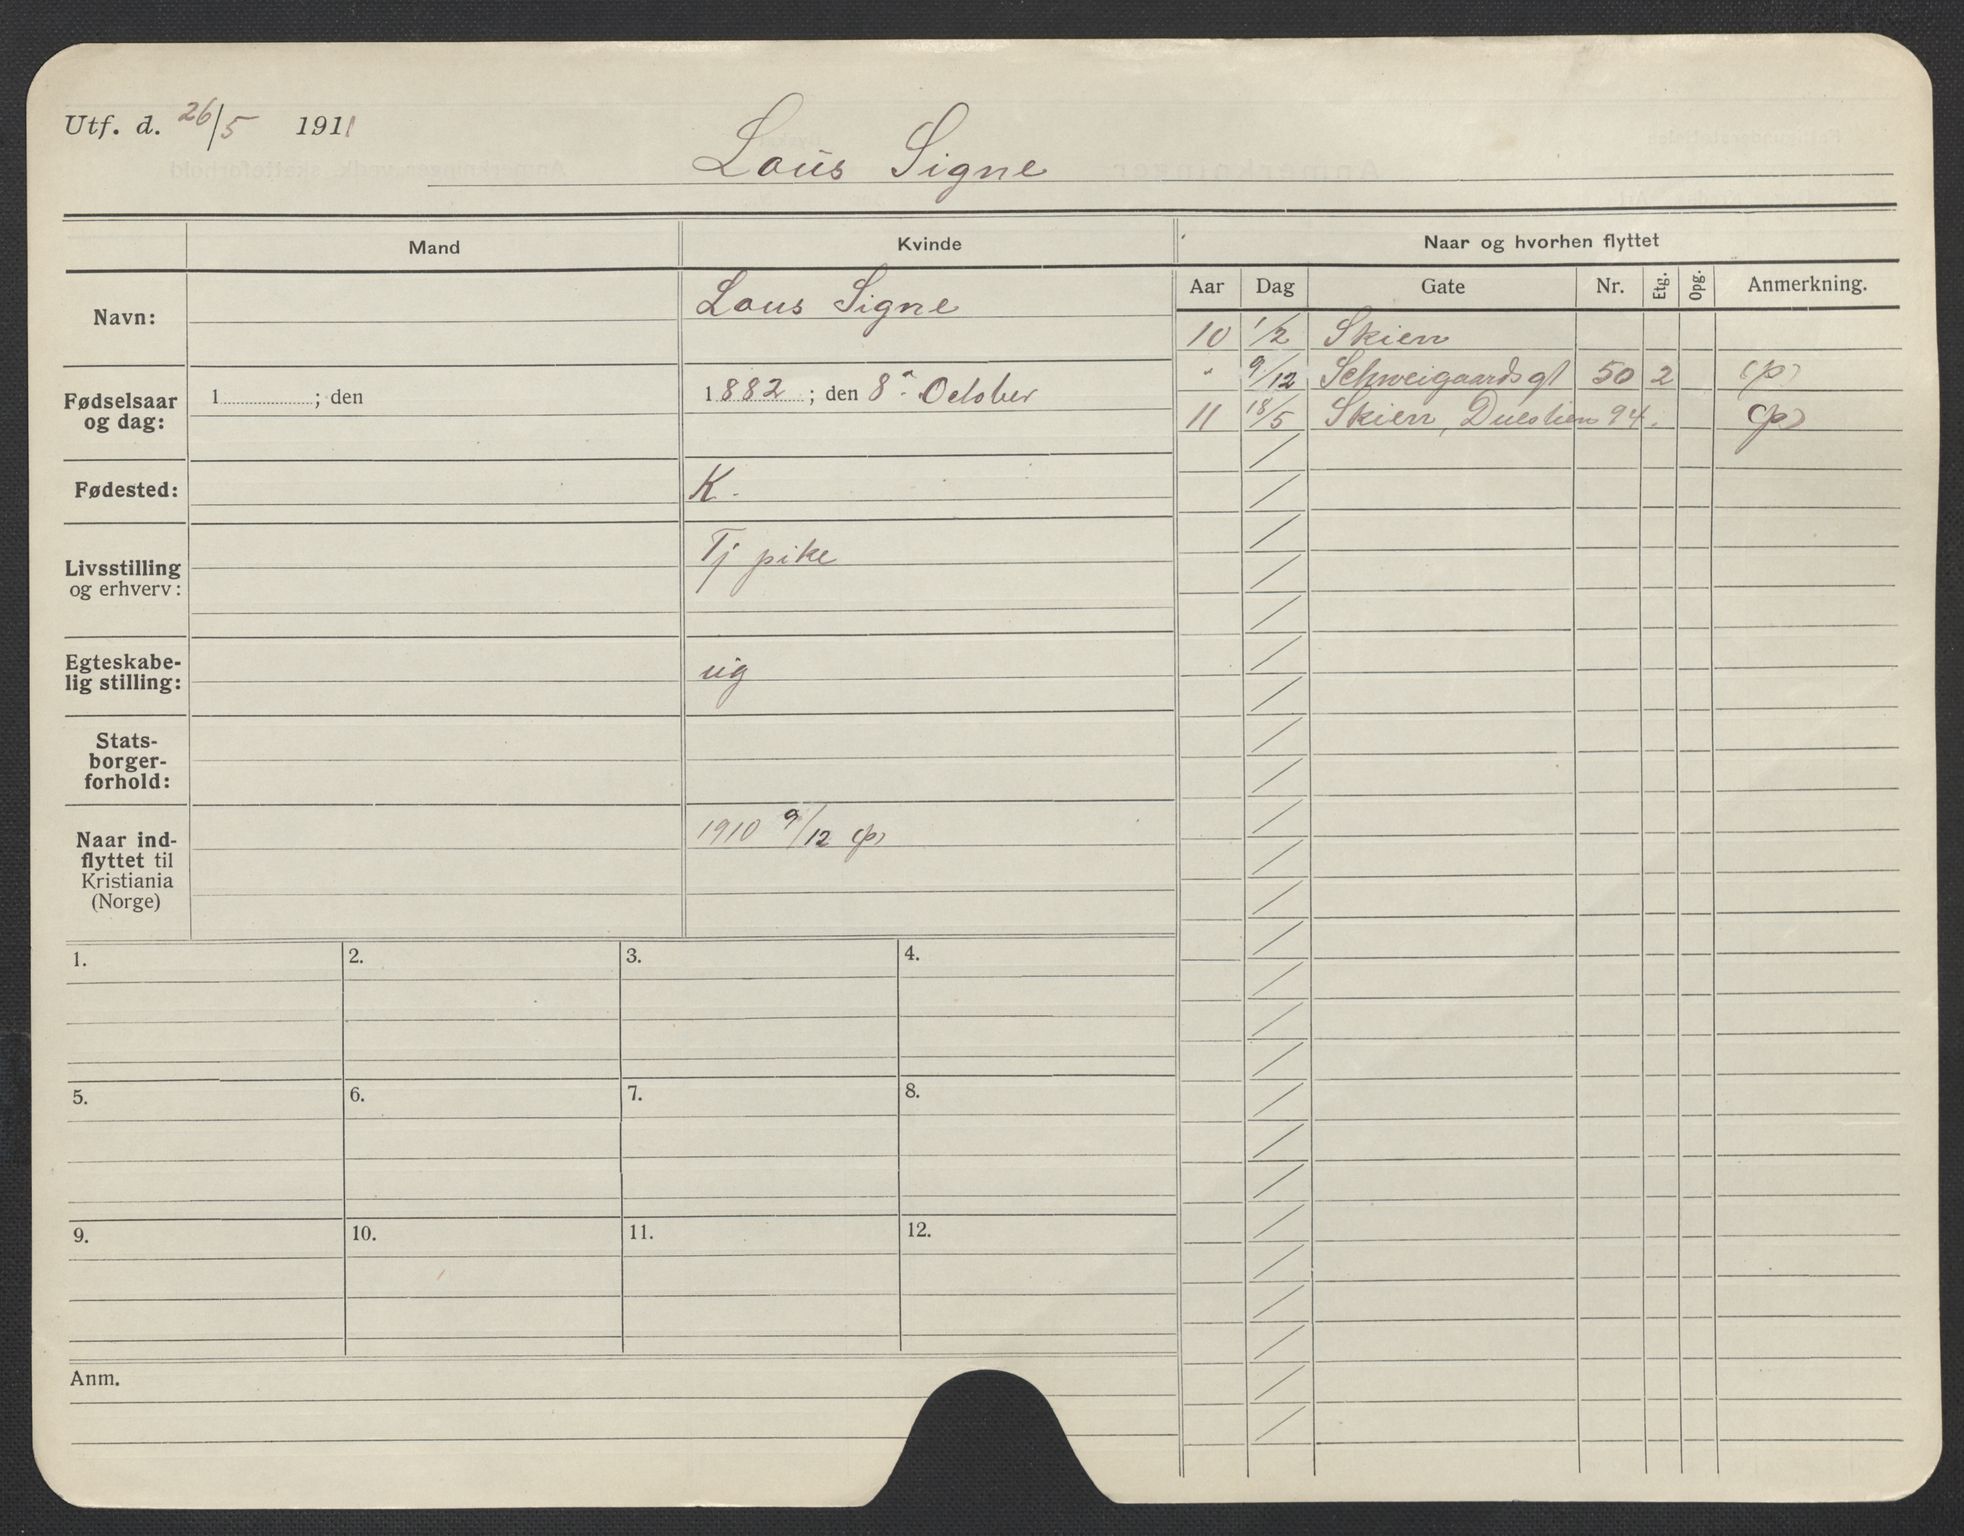 Utf. d. 26/5 1911
Loüs Signe
Mand
Kvinde
Naar og hvorhen flyttet
Aar
Dag
Gate
Nr.
Etg.
Opg.
Anmerkning.
Navn:
Lous Signe
10 1/2 Skien
" 9/12 Schweigaardsgt 50 2 (p)
11 18/5 Skien, 94. (p)
Fødselsaar
og dag:
1 ; den
1882 ; den 8n. October
Fødested:
K.
Livsstilling
og erhverv:
Tj pike
Egteskabe-
lig stilling:
ug
Stats-
borger-
forhold:
Naar ind-
flyttet til
Kristiania
(Norge)
1910 9/12 (p)
1.
2.
3.
4.
5.
6.
7.
8.
9.
10.
11.
12.
Anm.